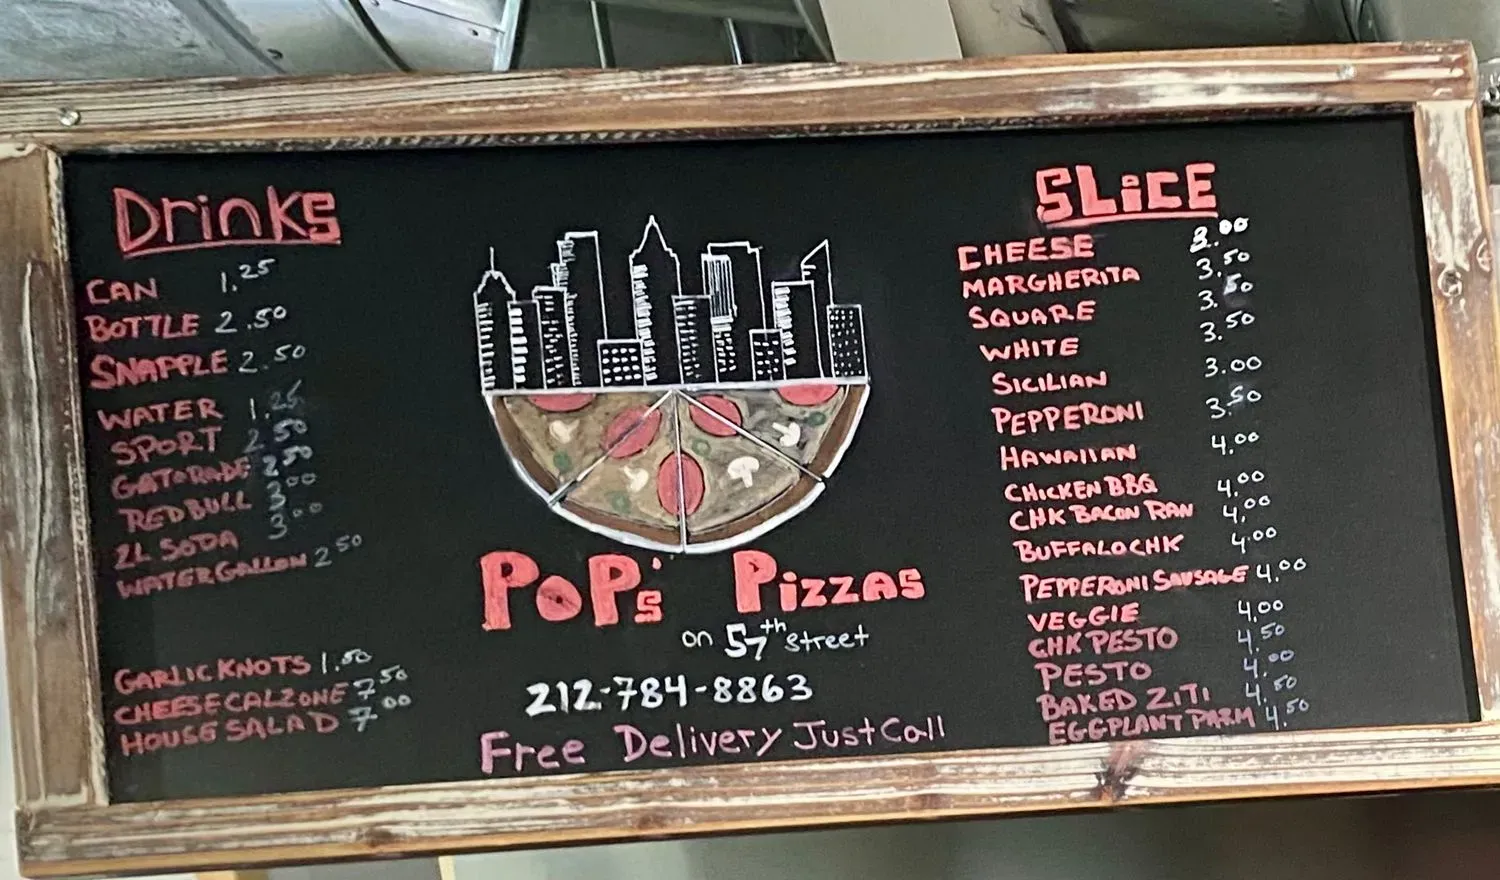 Drinks
CAN 1.25
BOTTLE 2.50
SNAPPLE 2.50
WATER 1.25
SPORT 2.50
GATORADE 2.50
REDBULL 3.00
2L SODA 3.00
WATER GALLON 2.50
GARLIC KNOTS 1.50
CHEESE CALZONE 7.50
HOUSE SALAD 7.00
POP's Pizzas
on 57th street
212-784-8863
Free Delivery Just Call
SLiCE
CHEESE 3.00
MARGHERITA 3.50
SQUARE 3.50
WHITE 3.50
SICILIAN 3.00
PEPPERONI 3.50
HAWAIIAN 4.00
CHICKEN BBQ 4.00
CHK BACON RAN 4.00
BUFFALO CHK 4.00
PEPPERONI SAUSAGE 4.00
VEGGIE 4.00
CHK PESTO 4.50
PESTO 4.00
BAKED ZITI 4.50
EGGPLANT PARM 4.50